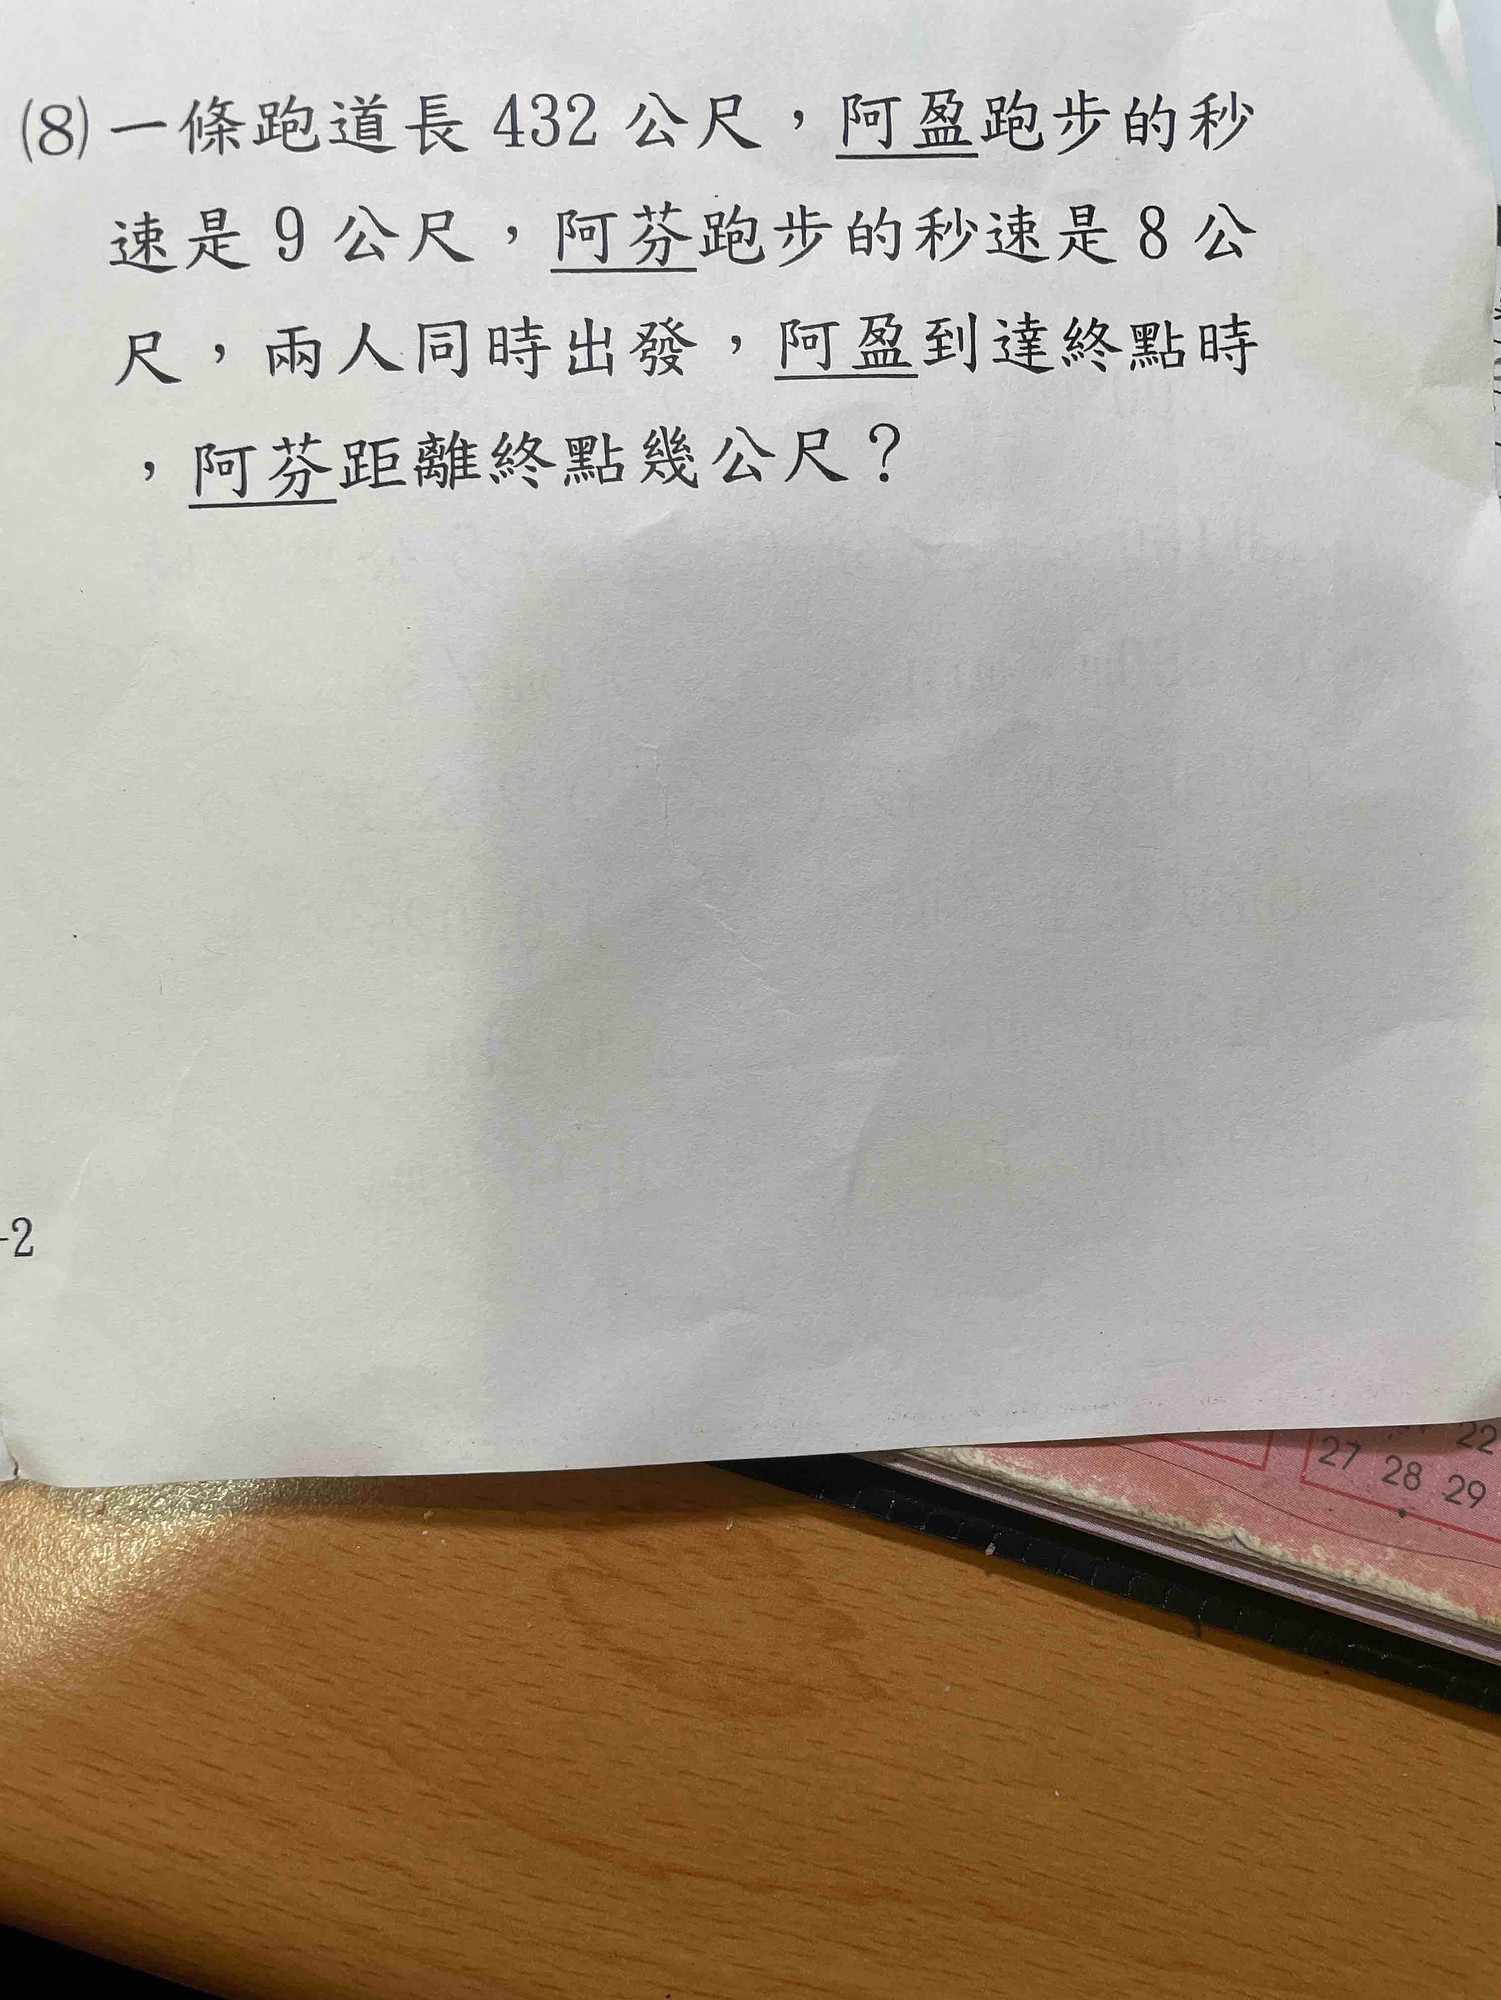 (8) 一條跑道長 432 公尺，阿盈跑步的秒
速是 9 公尺，阿芬跑步的秒速是 8 公
尺，兩人同時出發，阿盈到達終點時
，阿芬距離終點幾公尺？
-2
22
27 28 29